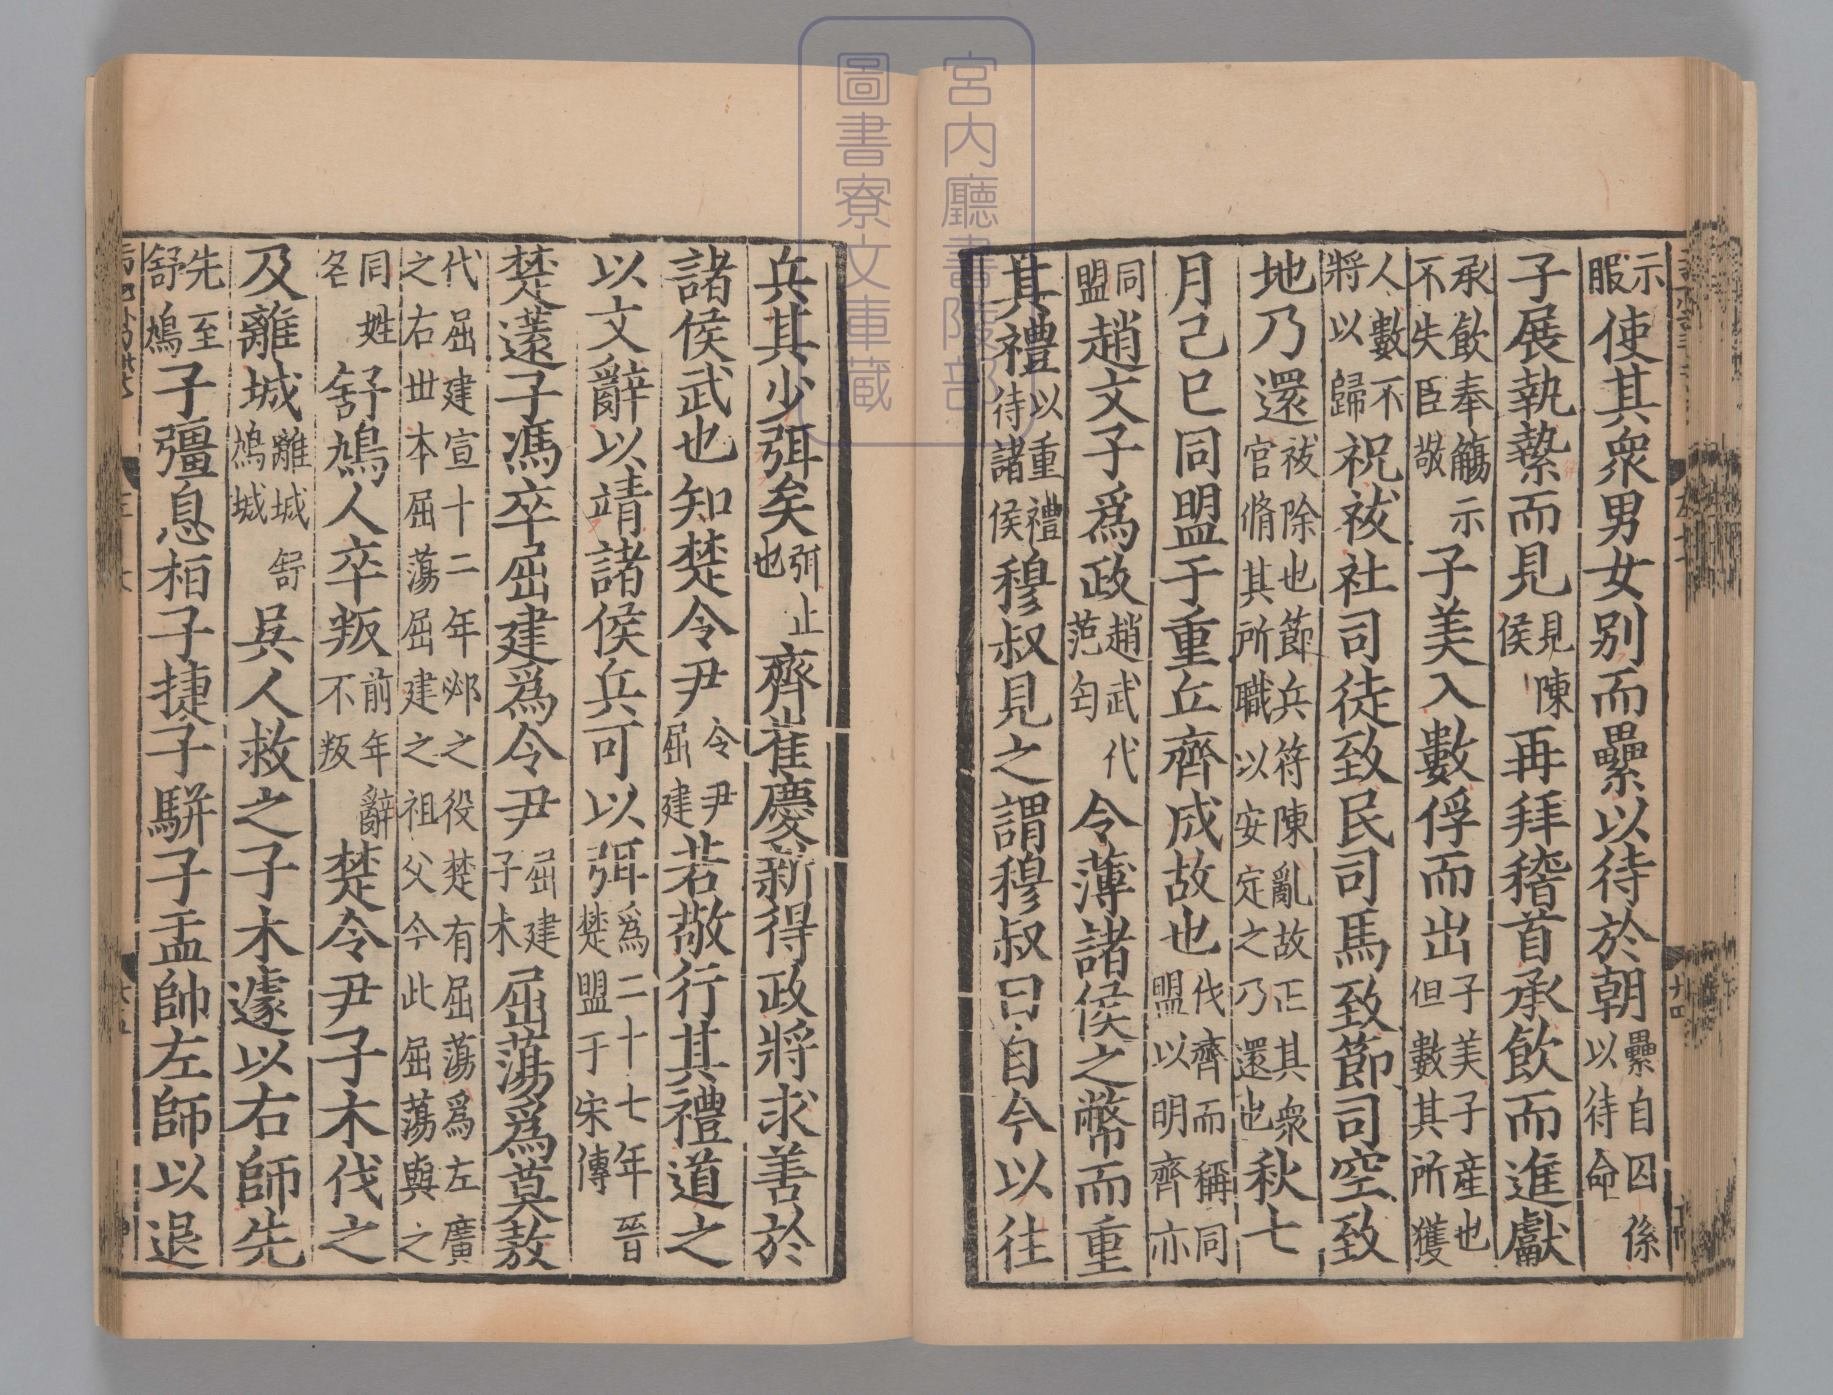 示服使其衆男女別而纍以待於朝纍自囚係以待命
子展執縶而見見陳侯再拜稽首承飲而進獻
承飲奉觴示不失臣敬子美入數俘而出子美子產也但數其所獲
人數不將以歸祝祓社司徒致民司馬致節司空致
地乃還祓除也節兵符陳亂故正其衆官脩其所職以安定之乃還也秋七
月己巳同盟于重丘齊成故也伐齊而稱同盟以明齊亦
同盟趙文子爲政趙武代范匄令薄諸侯之幣而重
其禮以重禮待諸侯穆叔見之謂穆叔曰自今以往
兵其少弭矣弭止也齊崔慶新得政將求善於
諸侯武也知楚令尹令尹屈建若敬行其禮道之
以文辭以靖諸侯兵可以弭爲二十七年晉楚盟于宋傳
楚薳子馮卒屈建爲令尹屈建子木屈蕩爲莫敖
代屈建宣十二年邲之役楚有屈蕩爲左廣之右世本屈蕩屈建之祖父今此屈蕩與之
同姓名舒鳩人卒叛前年辭不叛楚令尹子木伐之
及離城離城舒鳩城吳人救之子木遽以右師先
先至舒鳩子彊息桓子捷子駢子盂帥左師以退
宮内廳書陵部
圖書寮文庫藏